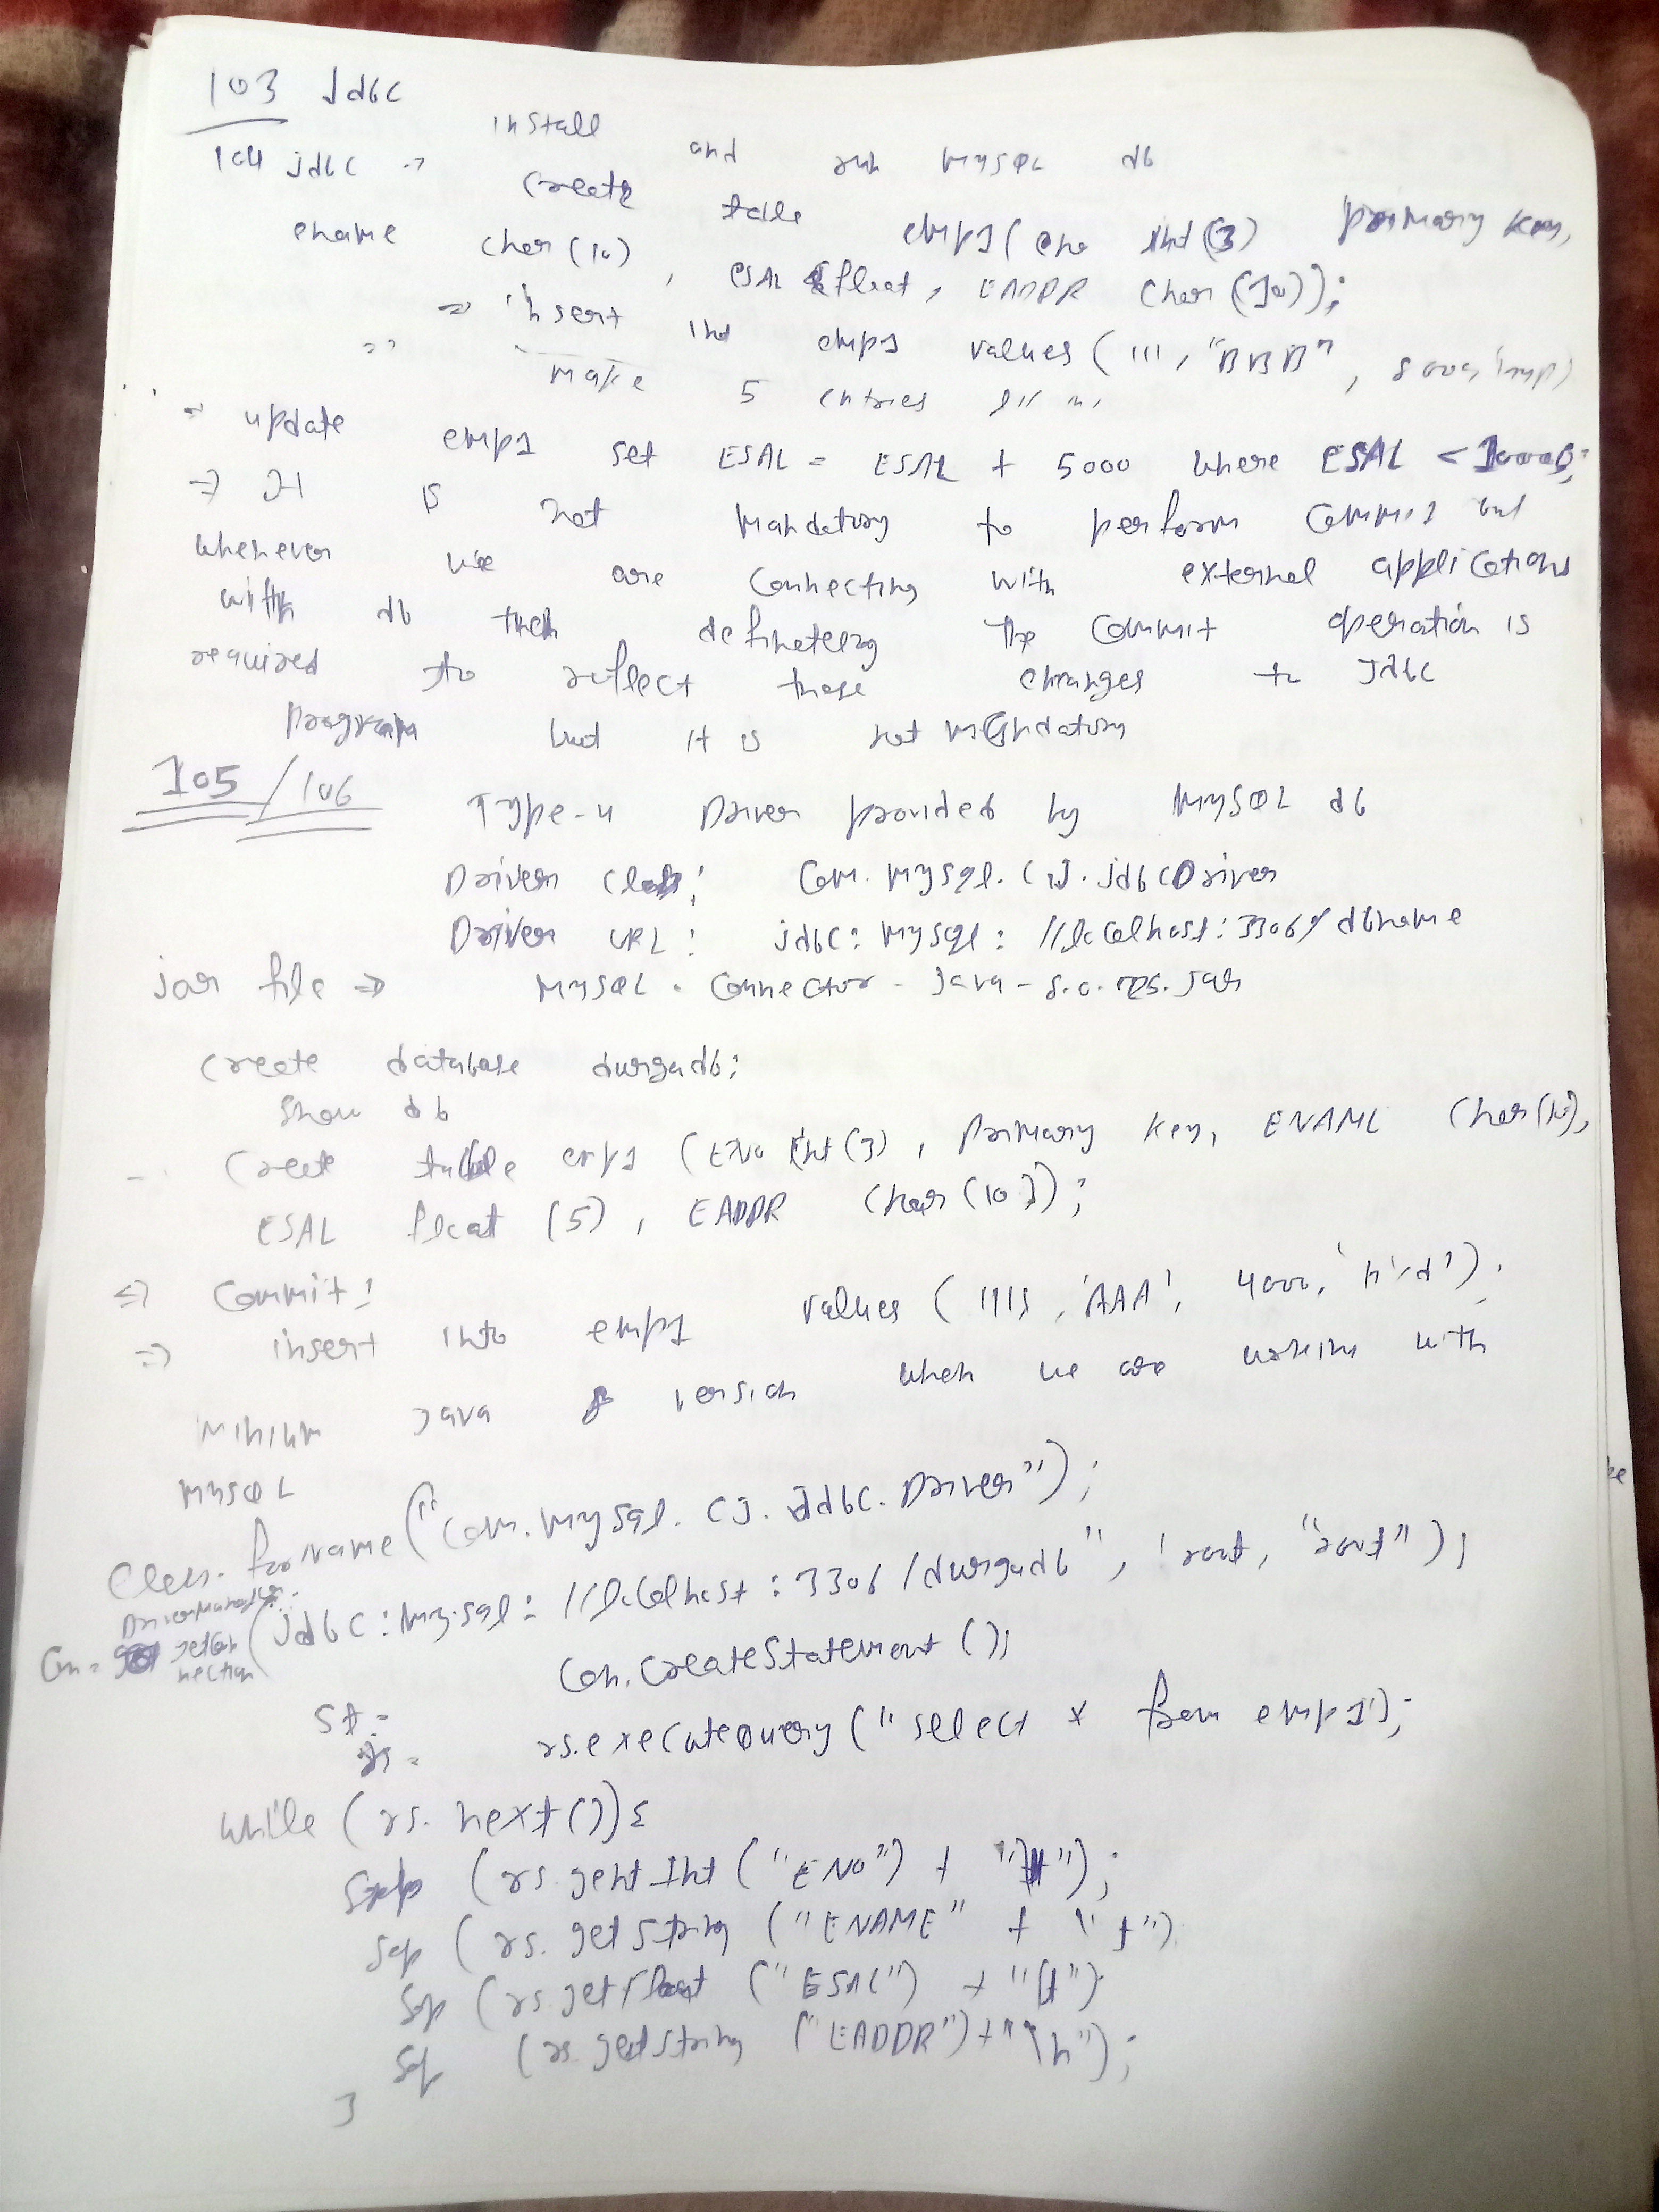 103 Jdbc
install and run MySQL db
104 jdbc → create table emp1( eno int(3) primary key,
ename char(10), ESAL float, EADDR char(10));
⇒ insert into emp1 values (111, "BBB", 8000,
make 5 entries
⇒ update emp1 set ESAL = ESAL + 5000 where ESAL < 10000;
⇒ It is not mandatory to perform commit but
whenever we are connecting with external applications
with db then definetely the commit operation is
required to reflect those changes to Jdbc
program but it is not mandatory
105/106
Type-4 Driver provided by MySQL db
Driver class: Com.mysql.cj.jdbcDriver
Driver URL: jdbc:mysql://localhost:3306/dbname
jar file ⇒ MySQL-Connector-Java-8.0..jar
create database durgadb;
show db
create table emp1 (ENO int(3), primary key, ENAME char(10),
ESAL float (5), EADDR char(10));
⇒ Commit;
⇒ insert into emp1 values (111, 'AAA', 4000, 'hyd');
Minium Java 8 version when we are working with
MySQL
Class.forName("com.mysql.cj.jdbc.Driver");
DriverManager.
Con = getConnection(jdbc:mysql://localhost:3306/durgadb", 'root, "root");
con.createStatement();
St =
rs = rs.executeQuery("select * from emp1");
while (rs.next()){
Sop (rs.getInt("ENO") + "\t");
Sop (rs.getString ("ENAME" + "\t")
Sop (rs.getFloat ("ESAL") + "\t")
Sop (rs.getString ("EADDR")+"\n");
}